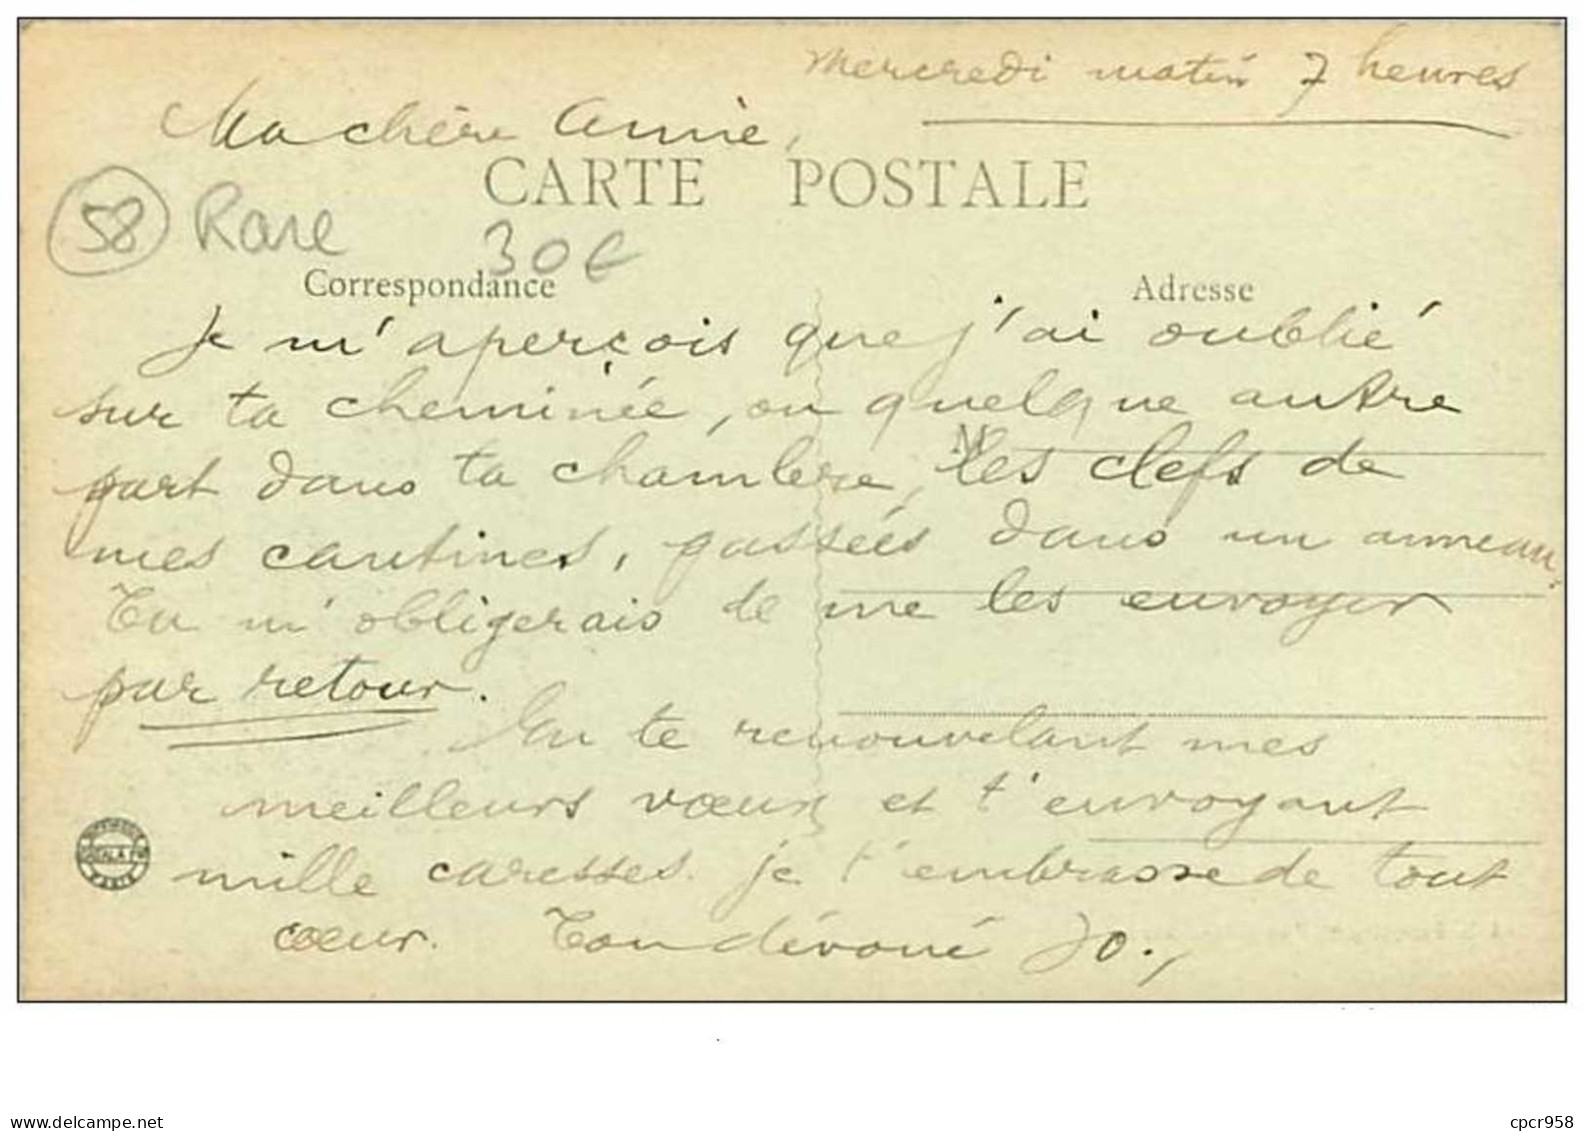 Mercredi matin 7 heures
Ma chère Annie,
CARTE POSTALE
58 Rare 30€
Correspondance Adresse
Je m'aperçois que j'ai oublié
sur ta cheminée, ou quelque autre
part dans ta chambre, les clefs de
mes cantines, passées dans un anneau.
Tu m'obligerais de me les envoyer
par retour.
En te renouvelant mes
meilleurs vœux et t'envoyant
mille caresses. je t'embrasse de tout
cœur. Ton dévoué Jo.,
PARIS
www.delcampe.net
cpcr958